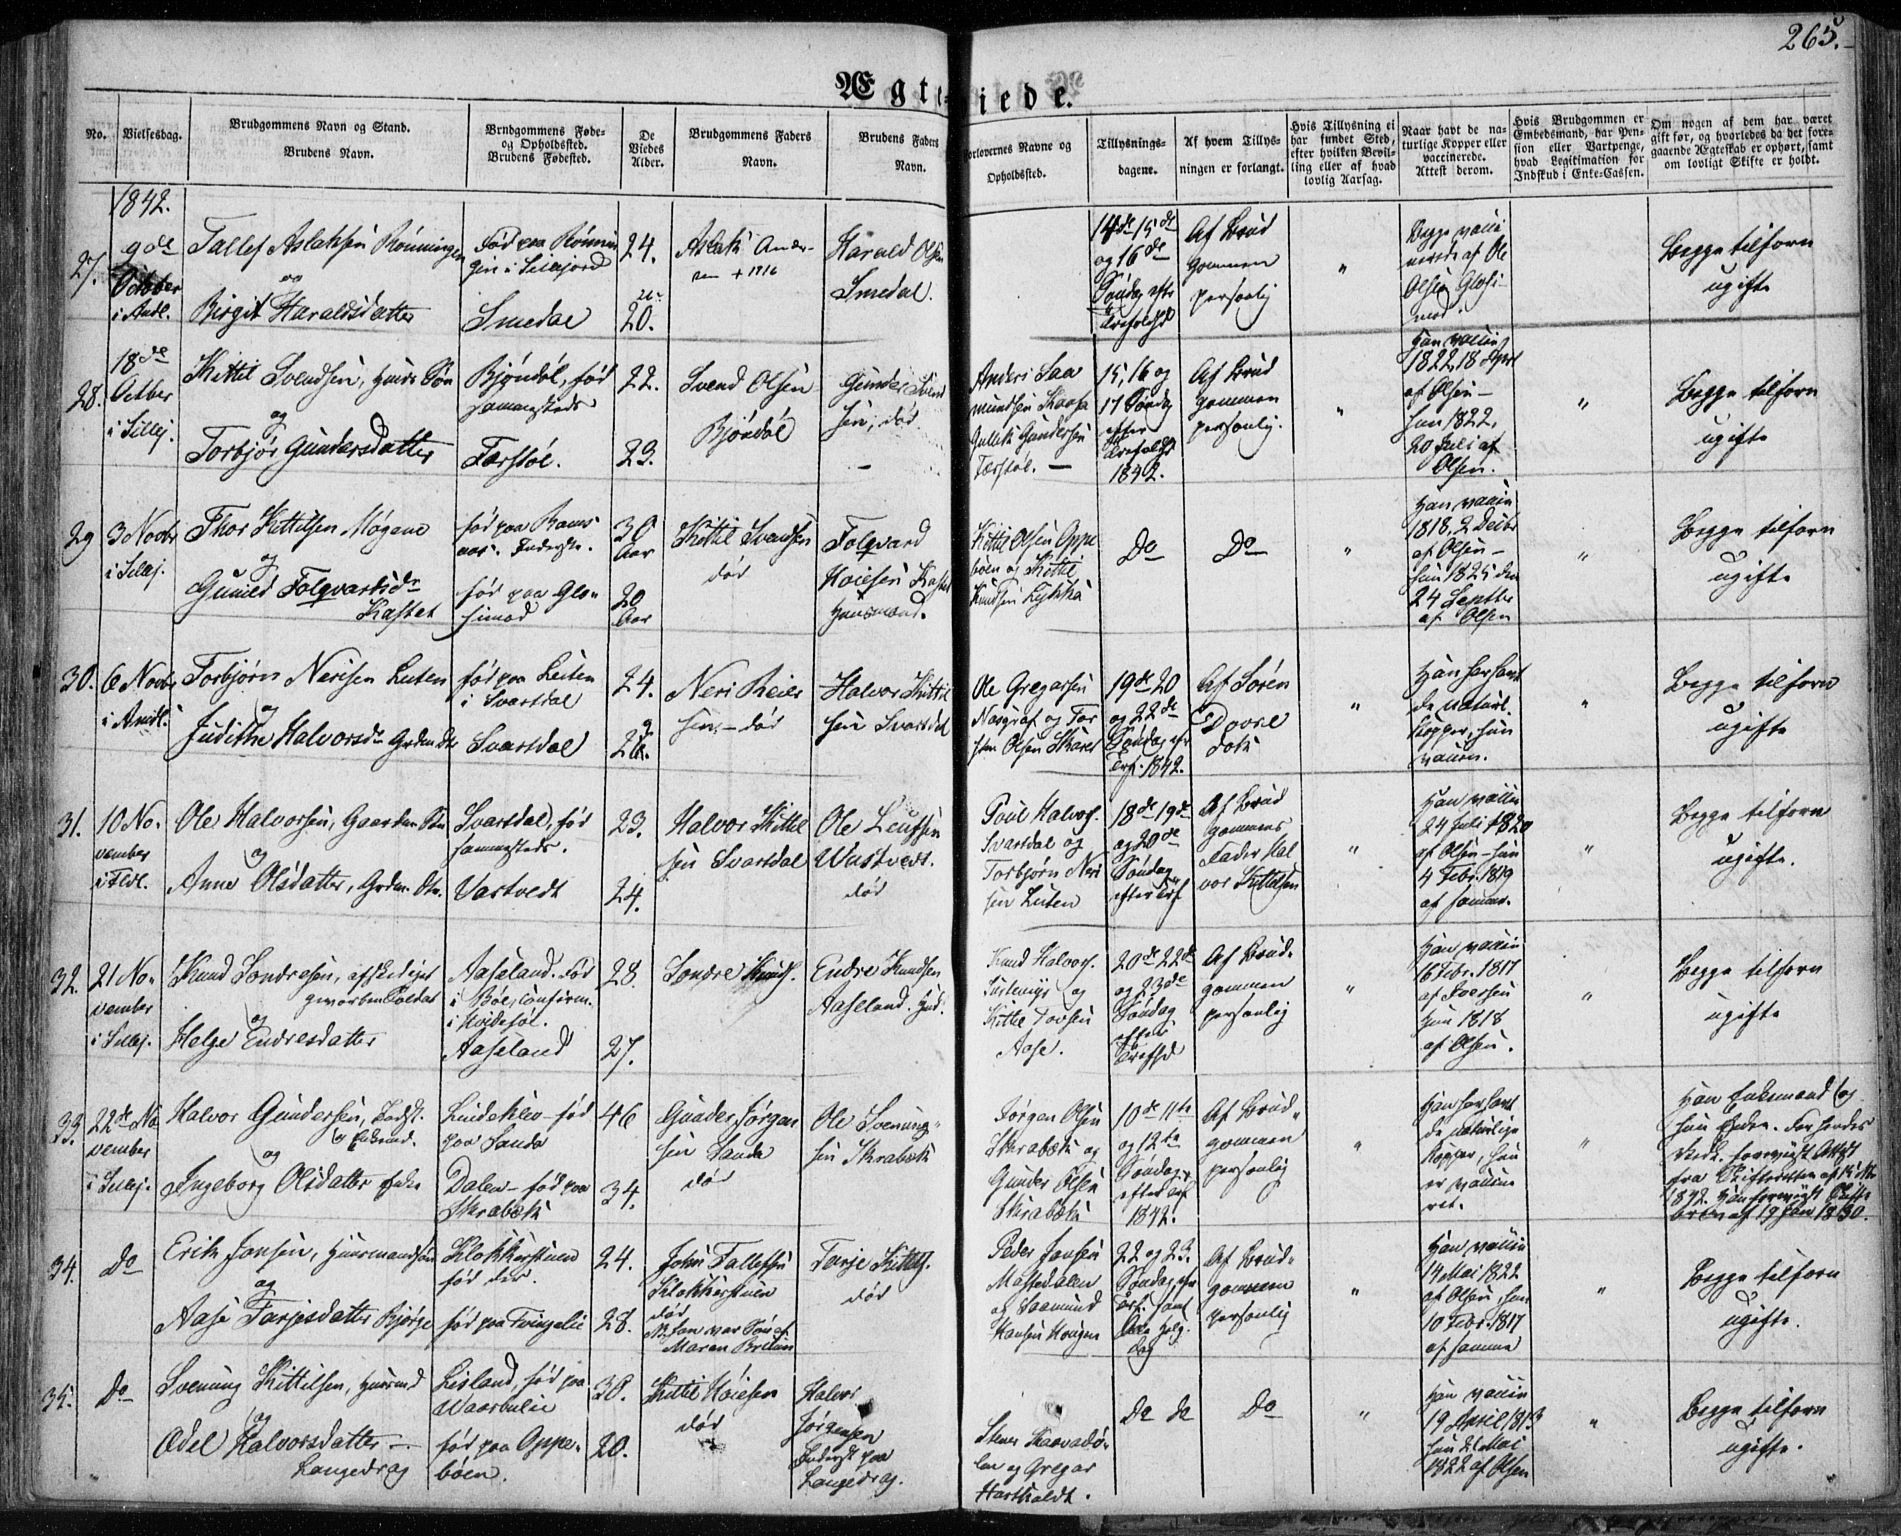 265.
Ægteviede.
No.
Vielsesdag.
Brudgommens Navn og Stand.
Brudens Navn.
Brudgommens Føde-
og Opholdssted.
Brudens Fødested.
De
Viedes
Alder.
Brudgommens Faders
Navn.
Brudens Faders
Navn.
Forlovernes Navne og
Opholdssted.
Tillysnings-
dagene.
Af hvem Tillys-
ningen er forlangt.
Hvis Tillysning ei
har fundet Sted,
efter hvilken Bevil-
ling eller af hvad
lovlig Aarsag.
Naar havt de na-
turlige Kopper eller
vaccinerede.
Attest derom.
Hvis Brudgommen er
Embedsmand, har Pen-
sion eller Vartpenge,
hvad Legitimation for
Indskud i Enke-Cassen.
Om nogen af dem har været
gift før, og hvorledes da det fore-
gaaende Ægteskab er ophørt, samt
om lovligt Skifte er holdt.
1842.
27.
9de
October
i Andl.
Tallef Aslaksen Rönningen
og
Birgit Haraldsdatter
Föd paa Rönnin
gen i Sillejord
Smedal
24.
20.
Aslak Ander-
sen + 1816
Harald Olsen
Smedal.
14de 15de
og 16de
Söndag efter
Trefoldigh
Af Brud
gommen
personlig
"
Begge vacci
nerede af Ole
Olsen Glosi-
mod.
Begge tilforn
ugifte
28.
18de
Octber
i Sillej.
Kittil Svendsen, Huusm. Sön
og
Torbjör Gundersdatter
Bjöndöl, född
sammesteds
Færstöl.
22.
23.
Svend Olsen
Bjöndöl
Gunder Svend
sen, död
Anders Saa
mundsen Skaasa
Gullik Gundersen
Færstöl. —
15, 16 og
17 Söndag
efter
Trefoldigh
1842.
Af Brud
gommen
personlig.
"
Han vaccin
1822 18 April
af Olsen —
hun 1822.
20 Juli af
Olsen.
"
Begge tilforn
ugifte
29
3 Novbr
i Sillej.
Thor Kittilsen Mogene
og
Gunild Folqvardsdr
Kastet
född paa Rams
aas. Inderste.
född paa Glo-
simod
30
Aar
20
Aar
Kittil Svendsen
död
Folqvard
Hoiesen Kastet
Huusmand.
Kittil Olsen Oppe
böen og Kittil
Knudsen Lykkja
Do
Do
"
Han vaccin
1818, 2 Decbr
af Olsen —
hun 1825 den
24 Septbr
af Olsen
"
Begge tilforn
ugifte
30.
6 Novbr
i Andl.
Torbjörn Nerisen Luten
og
Judithe Halvorsdr Grdmdtr
född paa Luten
i Svartdal
Svartdal
24.
26.
Neri Reier
sen — död
Halvor Kittil
sen Svartdal
Ole Gregarsen
Næsgraf og Tor
sten Olsen Skaret
19de 20
og 22de
Söndag efter
Tref. 1842.
Af Sören
Dovre
Dok
"
Han har havt
de naturl.
Kopper, hun
vaccin.
"
Begge tilforn
ugifte
31.
10 No-
vember
i Fldl.
Ole Halvorsen, Gaardm. Sön
og
Anne Olsdatter, Grdm. Dtr.
Svartdal, född
sammesteds.
Vastvedt
23.
24.
Halvor Kittil
sen Svartdal
Ole Leufsen
Wastvedt.
död
Poul Halvors.
Svartdal og
Torbjörn Neri
sen Luten
18de 19de
og 20de
Söndag
efter Tref
Af Brud
gommens
Fader Hal
vor Kittilsen
"
Han vaccin
24 Juli 1820
af Olsen — hun
4 Febr. 1819
af samme.
"
Begge tilforn
ugifte.
32.
21 No-
vember
i Sillej.
Knud Sondresen, afskediget
gevorben Soldat
og
Helge Endresdatter
Aaseland. Född
i Böe, confirm.
i Hvidesöl.
Aaseland
28.
27.
Sondre Knuds.
Endre Knudsen
Aaseland. Huusm.
Knud Halvors.
og
Kittil Tovsen
Aase.
20de 22de
og 23de
Söndag
efter
Trefhd
Af Brud-
gommen
personlig
"
Han vaccin
16 Febr. 1817
af Iversen
hun 1818
af Olsen.
"
Begge tilforn
ugifte
33.
22de No
vember
i Sillej.
Halvor Gundersen, Indst.
og Enkemd.
og
Ingeborg Olsdatter Enke
Lindeklev född
paa Sanda
Dalen född paa
Skrabæk
46
34.
Gunder Jörgen
sen Sanda
död
Ole Svenung-
sen Skrabæk
Jörgen Olsen
Skrabæk og
Gunder Olsen
Skrabæk
10de 11te
og 12te
Söndag
efter Tref
1842.
Af Brud-
gommen
personlig
"
Han har havt
de naturlige
Kopper, hun
er vaccine
ret.
"
Han Enkemand og
hun Enke.
foreviist Attest
fra Skifteretten af 15
1842. Han foreviist Skifte
brev af 19 Jan 1830.
34.
Do
Erik Jonsen, Huusmandssön
og
Aase Tarjesdatter Bjørge
Klokkerstuen
född der.
född paa Tvingelie
24.
28.
John Tallefsen
Klokkerstuen
död
Tarje Kittels.
död
Peder Jonsen
Mossedalen
og Saamund
Hansen Haugen
22 og 23.
Söndag efter
Tref. samt
Alle helg.
dag
Af Brud-
gommen
personlig
"
Han vaccin
14 Mai 1822
af Olsen, hun
10 Febr. 1817
af samme
"
Begge tilforn
ugifte.
35.
Do
Svenung Kittilsen, Huusmd
og
Odel Halvorsdatter —
Langedrag
Lisland, född paa
Waarbulie
född paa Oppe-
böen.
30.
20.
Kittil Hoiesen
död
Halvor
Jörgensen
Inderst paa
Langedrag.
Stener Kaavadö-
len og Gregar
Hartkaldt.
Do do
Do
"
Han vaccin
19 April 1813
hun 21 Mai
1822 af Olsen
"
Begge tilforn
ugifte.